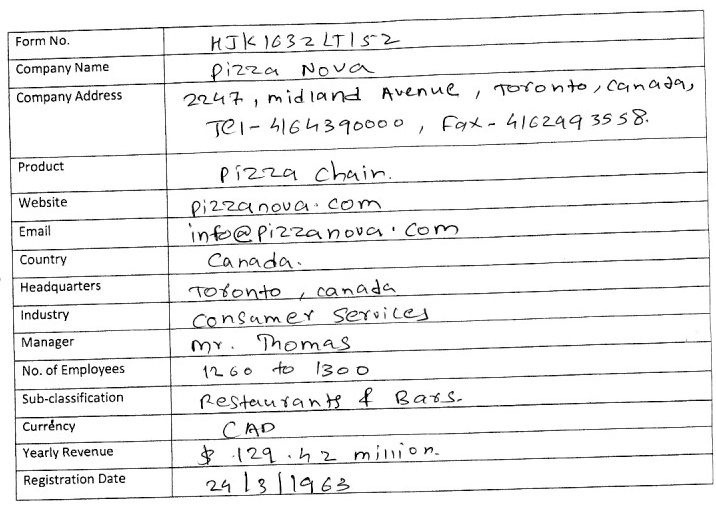 Form No. HJK1632LT152
Company Name Pizza Nova
Company Address 2247, midland Avenue, Toronto, Canada,
Tel - 4164390000, Fax - 4162993558.
Product Pizza Chain.
Website pizzanova.com
Email info@pizzanova.com
Country Canada.
Headquarters Toronto, canada
Industry Consumer Services
Manager Mr. Thomas
No. of Employees 1260 to 1300
Sub-classification Restaurants & Bars.
Currency CAD
Yearly Revenue $ 129.42 million.
Registration Date 24/3/1963